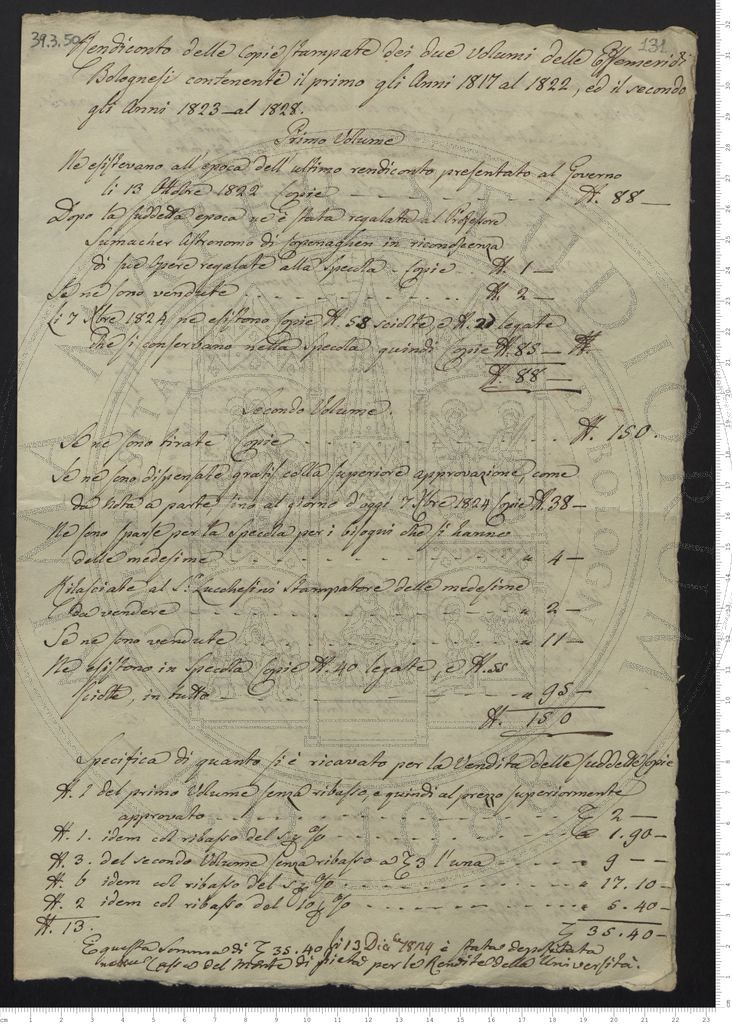 39.3.50
131.
Rendiconto delle Copie stampate dei due Volumi delle Effemeridi
Bolognesi contenente il primo gli Anni 1817 al 1822, ed il secondo
gli Anni 1823 al 1828.
Primo Volume
Ne esistevano all'epoca dell'ultimo rendiconto presentato al Governo
li 13 Ottobre 1822 Copie N. 88
Dopo la suddetta epoca ne è stata regalata al Professore
Sumacher Astronomo di Copenaghen in riconoscenza
di sue Opere regalate alla Specola Copie N. 1
Se ne sono vendute N. 2
Li 7 Xbre 1824 ne esistono Copie N. 58 sciolte e N. 27 legate
che si conservano nella Specola quindi Copie N. 85 N.
N. 88
Secondo Volume.
Se ne sono tirate Copie N. 150.
Se ne sono dispensate gratis colla superiore approvazione, come
da Nota a parte sino al giorno d'oggi 7 Xbre 1824 Copie N. 38
Ne sono sparse per la Specola per i bisogni che si hanno
delle medesime " 4
Rilasciate al S.r Lucchesini Stampatore delle medesime
da vendere " 2
Se ne sono vendute " 11
Ne esistono in Specola Copie N. 40 legate, e N. 55
sciolte, in tutto " 95
N. 150
Specifica di quanto si è ricavato per la Vendita delle suddette Copie
N. 1 del primo Volume senza ribasso, e quindi al prezzo superiormente
approvato 2
N. 1. idem col ribasso del 5 p% 1.90
N. 3. del secondo Volume senza ribasso a 3 l'una 9
N. 6 idem col ribasso del 5 p% 17.10
N. 2 idem col ribasso del 10 p% 5.40
N. 13. 35.40
E questa somma di 35.40 li 13 Dic.e 1824 è stata depositata
nella Cassa del Monte di Pietà per le Rendite della Università.